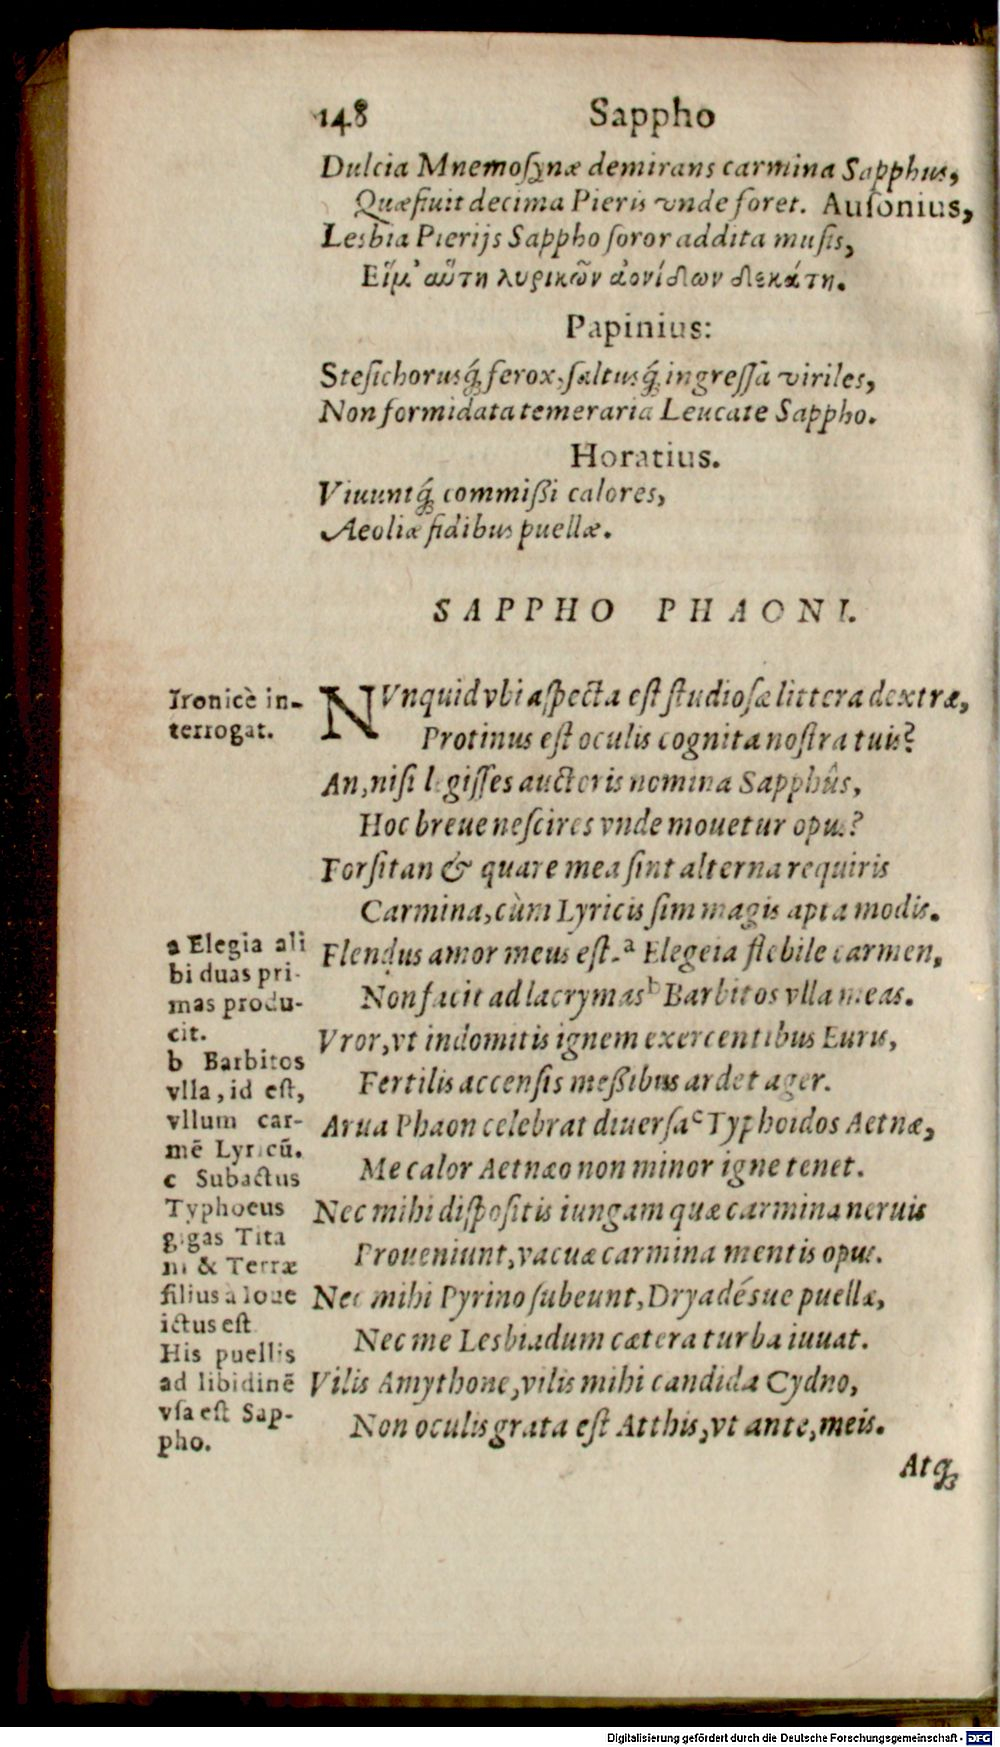 148 Sappho
Dulcia Mnemoſynæ demirans carmina Sapphus,
Quæſiuit decima Pieris vnde foret. Auſonius,
Lesbia Pierijs Sappho ſoror addita muſis,
Εἴμ' αὕτη λυρικῶν ἀονίδων δεκάτη.
Papinius:
Steſichorusq́; ferox, ſaltusq́; ingreſſa viriles,
Non formidata temeraria Leucate Sappho.
Horatius.
Viuuntq́; commißi calores,
Aeoliæ fidibus puellæ.
SAPPHO PHAONI.
Ironicè in-
terrogat.
NVnquid vbi aſpecta eſt ſtudioſæ littera dextræ,
Protinus eſt oculis cognita noſtra tuis?
An, niſi legiſſes auctoris nomina Sapphûs,
Hoc breue neſcires vnde mouetur opus?
Forſitan & quare mea ſint alterna requiris
Carmina, cùm Lyricis ſim magis apta modis.
Flendus amor meus eſt. a Elegeia flebile carmen,
Non facit ad lacrymas b Barbitos vlla meas.
Vror, vt indomitis ignem exercentibus Euris,
Fertilis accenſis meßibus ardet ager.
Arua Phaon celebrat diuerſa c Typhoidos Aetnæ,
Me calor Aetnæo non minor igne tenet.
Nec mihi diſpoſitis iungam quæ carmina neruis
Proueniunt, vacuæ carmina mentis opus.
Nec mihi Pyrino ſubeunt, Dryadésue puellæ,
Nec me Lesbiadum cætera turba iuuat.
Vilis Amythone, vilis mihi candida Cydno,
Non oculis grata eſt Atthis, vt ante, meis.
a Elegia ali
bi duas pri-
mas produ-
cit.
b Barbitos
vlla, id eſt,
vllum car-
mē Lyricū.
c Subactus
Typhoeus
gigas Tita
ni & Terræ
filius a Ioue
ictus eſt
His puellis
ad libidinē
vſa eſt Sap-
pho.
Atq;
Digitalisierung gefördert durch die Deutsche Forschungsgemeinschaft - DFG